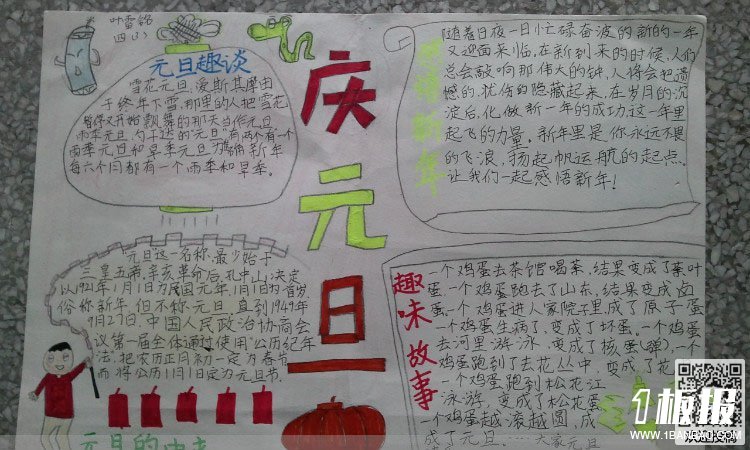 叶雪锦
四(3)
元旦趣谈
雪花元旦,爱斯基摩由
于终年下雪,那里的人把雪花
飘舞的那天当作元旦
雨季元旦,
雨季元旦和旱季元旦为
每六个月都有一个雨季和旱季。
庆元旦
感悟新年
随着日夜一日忙碌奋波的新的一年
又迎面来临,在新到来的时候,人们
总会敲响那伟大的钟,人将会把遗
憾的,忧伤的隐藏起来,在岁月的沉
淀后,化做新一年的成功,这一年里
起飞的力量。新年里是你永远不畏
的飞浪,扬起帆运航的起点。
让我们一起感悟新年!
"元旦这一名称,最少始于
三皇五帝,辛亥革命后,孔中山,决定
以1921年1月1日为民国元年,1月1日为首岁,
俗称新年,但不称元旦,直到1949年
9月27日,中国人民政治协商会
议第一届全体通过使用"公历纪年
法,把农历正月初一定为春节
而将公历1月1日定为元旦节.
元旦的由来
趣味故事
一个鸡蛋去茶馆喝茶,结果变成了茶叶
蛋,一个鸡蛋跑去了山东,结果变成卤
蛋,一个鸡蛋进人家院子里成了原子蛋
一个鸡蛋生病了,变成了坏蛋。一个鸡蛋
去河里游泳,变成了核蛋(弹),一个
鸡蛋跑到了去花丛中,变成了花
一个鸡蛋跑到松花江
游泳,变成了松花蛋
一个鸡蛋越滚越圆,成
成了元旦.……大家元旦
板报
WWW.1BANBAO.COM
欢迎投稿